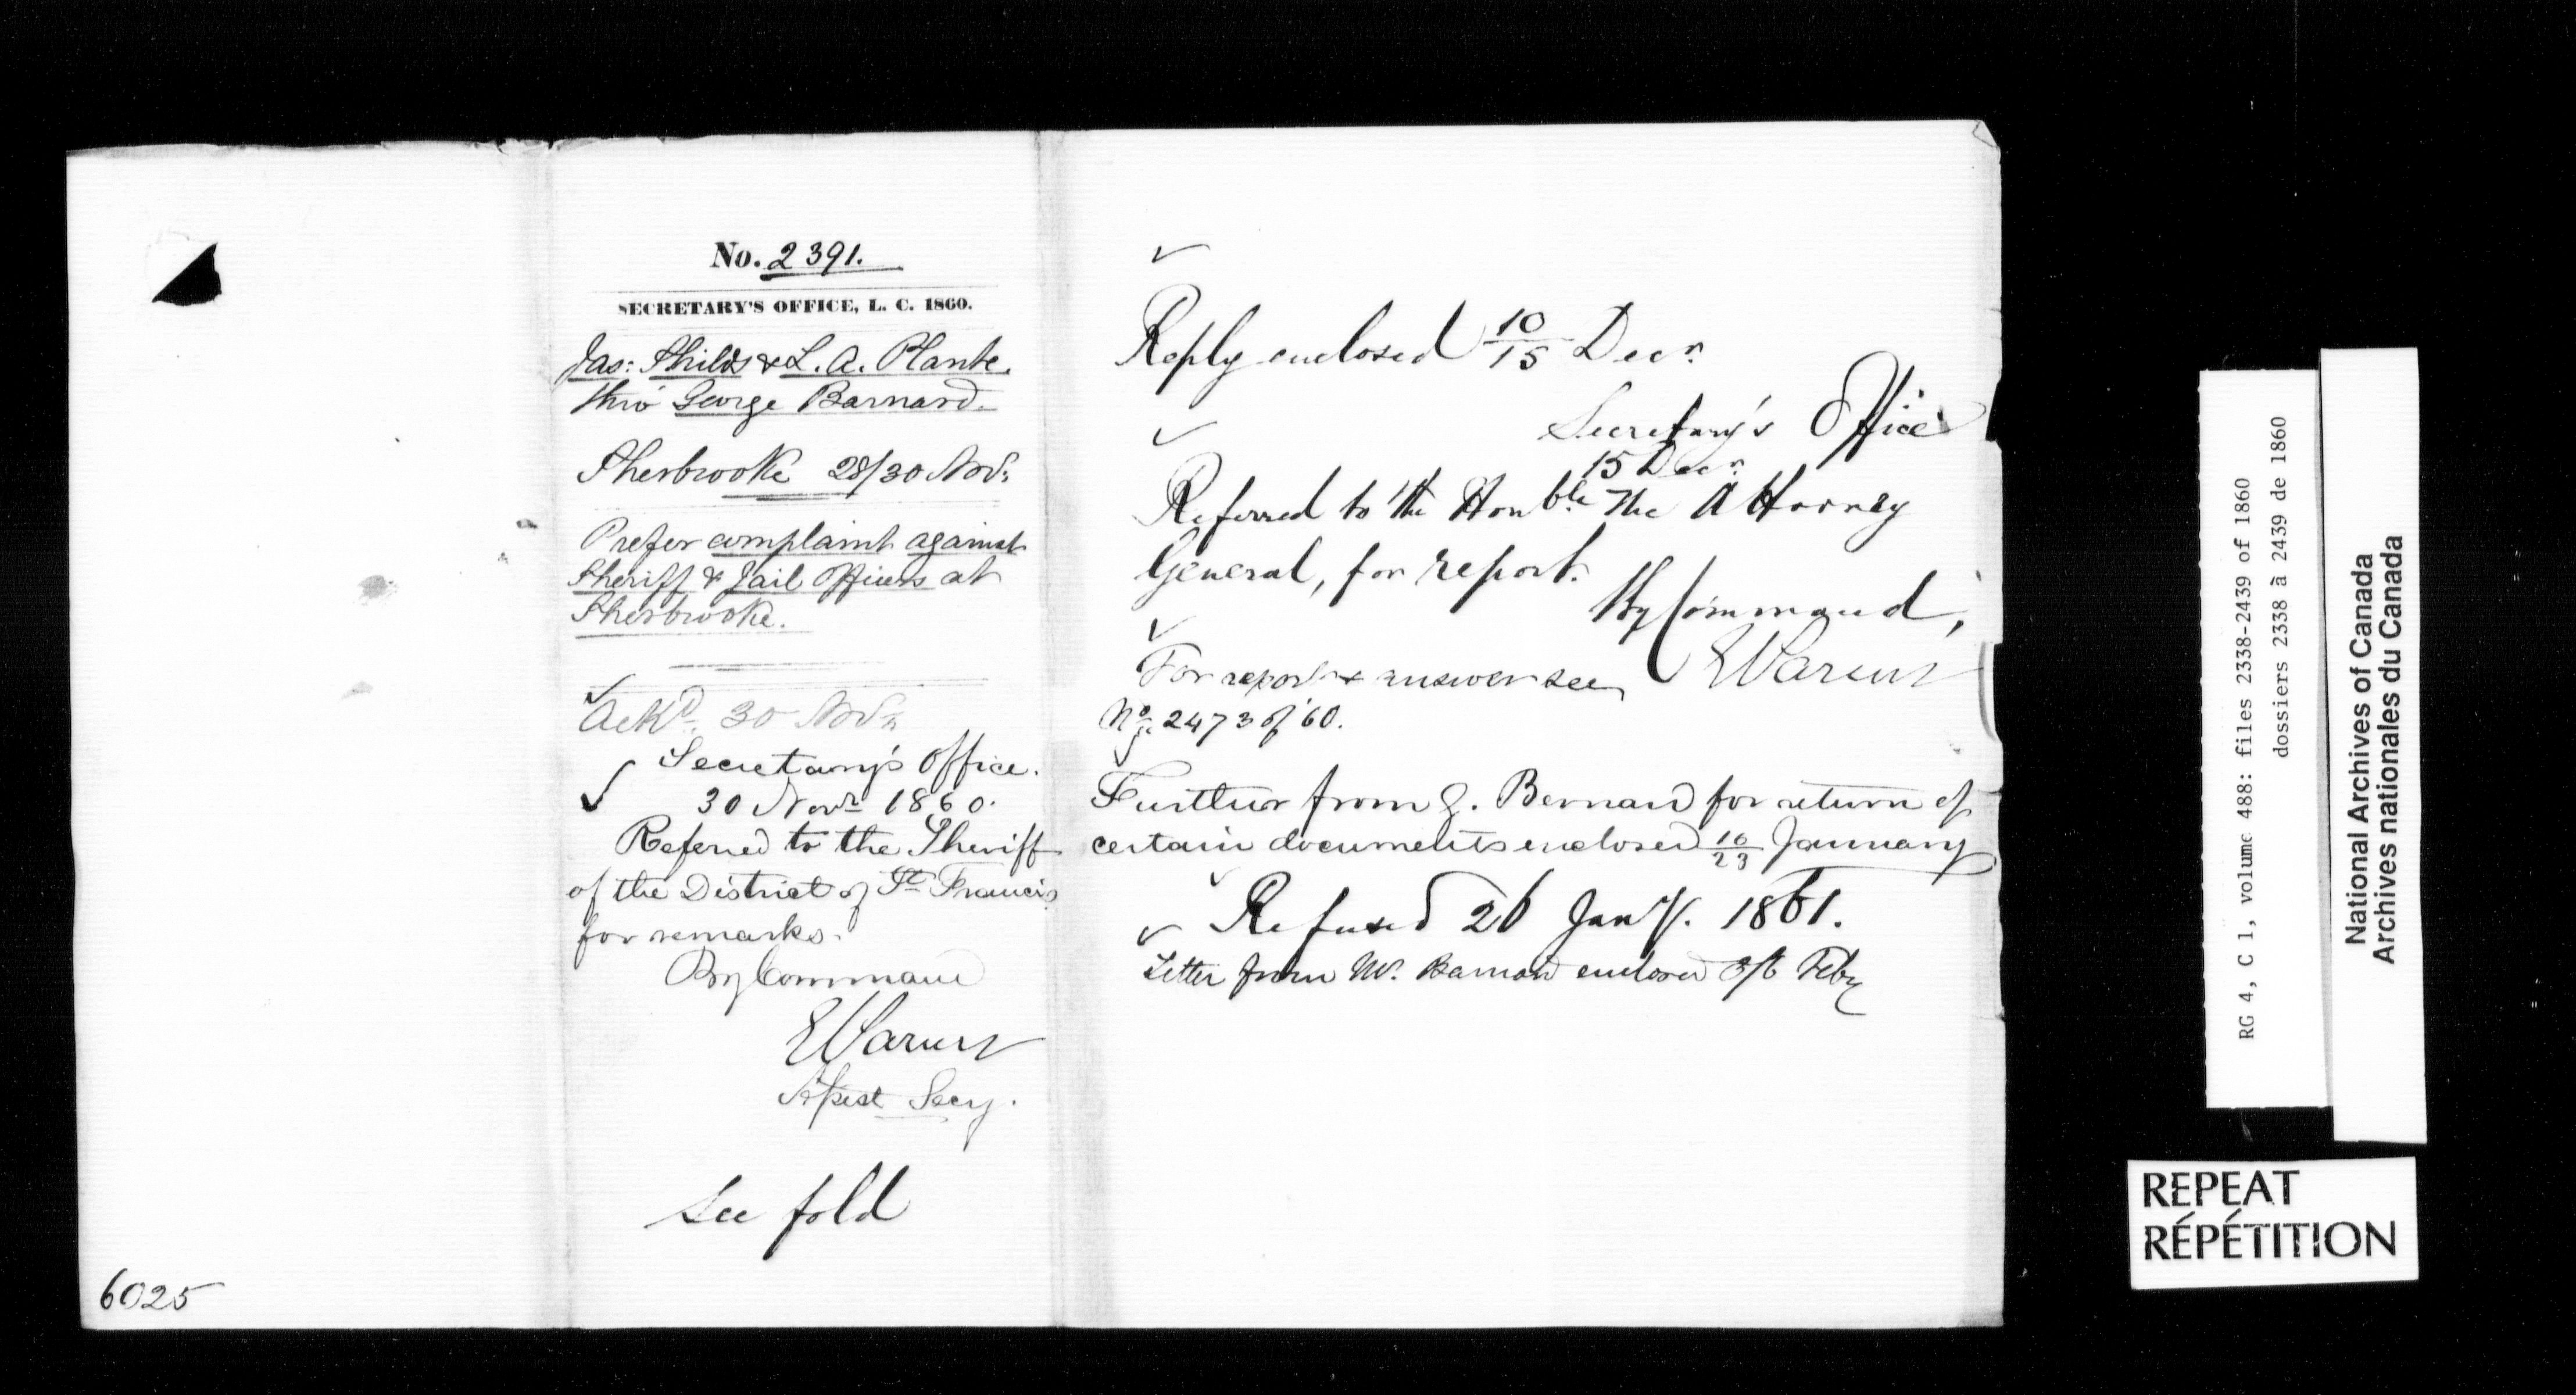 No. 2391.
SECRETARY'S OFFICE, L. C. 1860.
Jas: Shilds & L. A. Plante.
thro' George Barnard.
Sherbrooke 28/30 Novr.
Prefer complaint against
Sheriff & Jail Officers at
Sherbrooke.
Ackd. 30 Novr.
Secretary's Office.
30 Novr 1860.
Referred to the Sheriff
of the District of St Francis
for remarks.
By Command
Asist Secy.
See fold
6025
Reply enclosed 10/15 Decr.
Secretary's Office
15 Decr.
Referred to the Honble. The Attorney
General, for report.
By Command,
For report & answer see
No. 2473 of '60.
Further from G. Bernard for return of
certain documents enclosed 10/23 January
Refused 26 Jany. 1861.
Letter from Mr. Barnard enclosed 5/6 Feby
RG 4, C 1, volume 488: files 2338-2439 of 1860
dossiers 2338 à 2439 de 1860
National Archives of Canada
Archives nationales du Canada
REPEAT
RÉPÉTITION